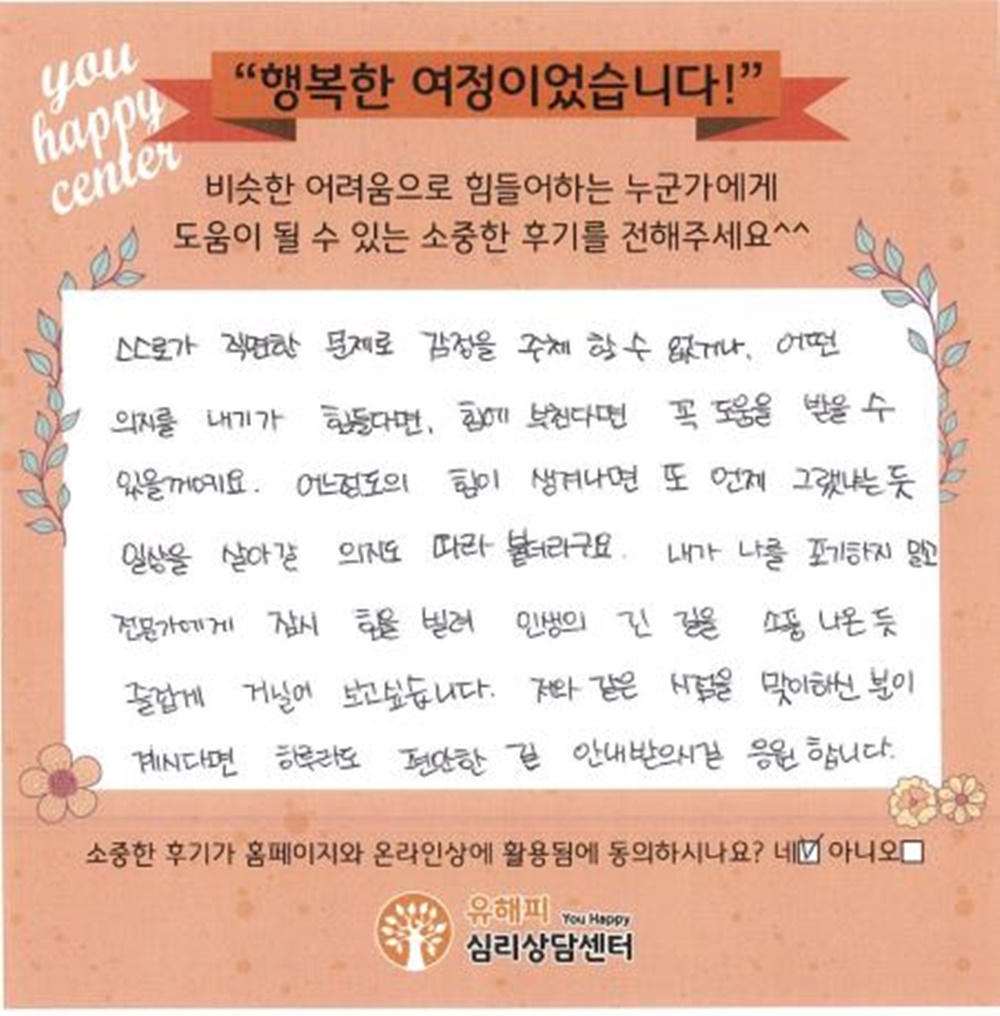 you
happy
center
“행복한 여정이었습니다!”
비슷한 어려움으로 힘들어하는 누군가에게
도움이 될 수 있는 소중한 후기를 전해주세요^^
스스로가 직면한 문제로 감정을 주체 할 수 없거나, 어떤
의지를 내기가 힘들다면, 힘에 부친다면 꼭 도움을 받을 수
있을꺼예요. 어느정도의 힘이 생겨나면 또 언제 그랬냐는 듯
일상을 살아갈 의지도 따라 붙더라구요. 내가 나를 포기하지 말고
전문가에게 잠시 힘을 빌려 인생의 긴 길을 소풍 나온 듯
즐겁게 거닐어 보고싶습니다. 저와 같은 시점을 맞이하신 분이
계시다면 하루라도 편안한 길 안내받으시길 응원 합니다.
소중한 후기가 홈페이지와 온라인상에 활용됨에 동의하시나요? 네☑ 아니오☐
유해피 You Happy
심리상담센터